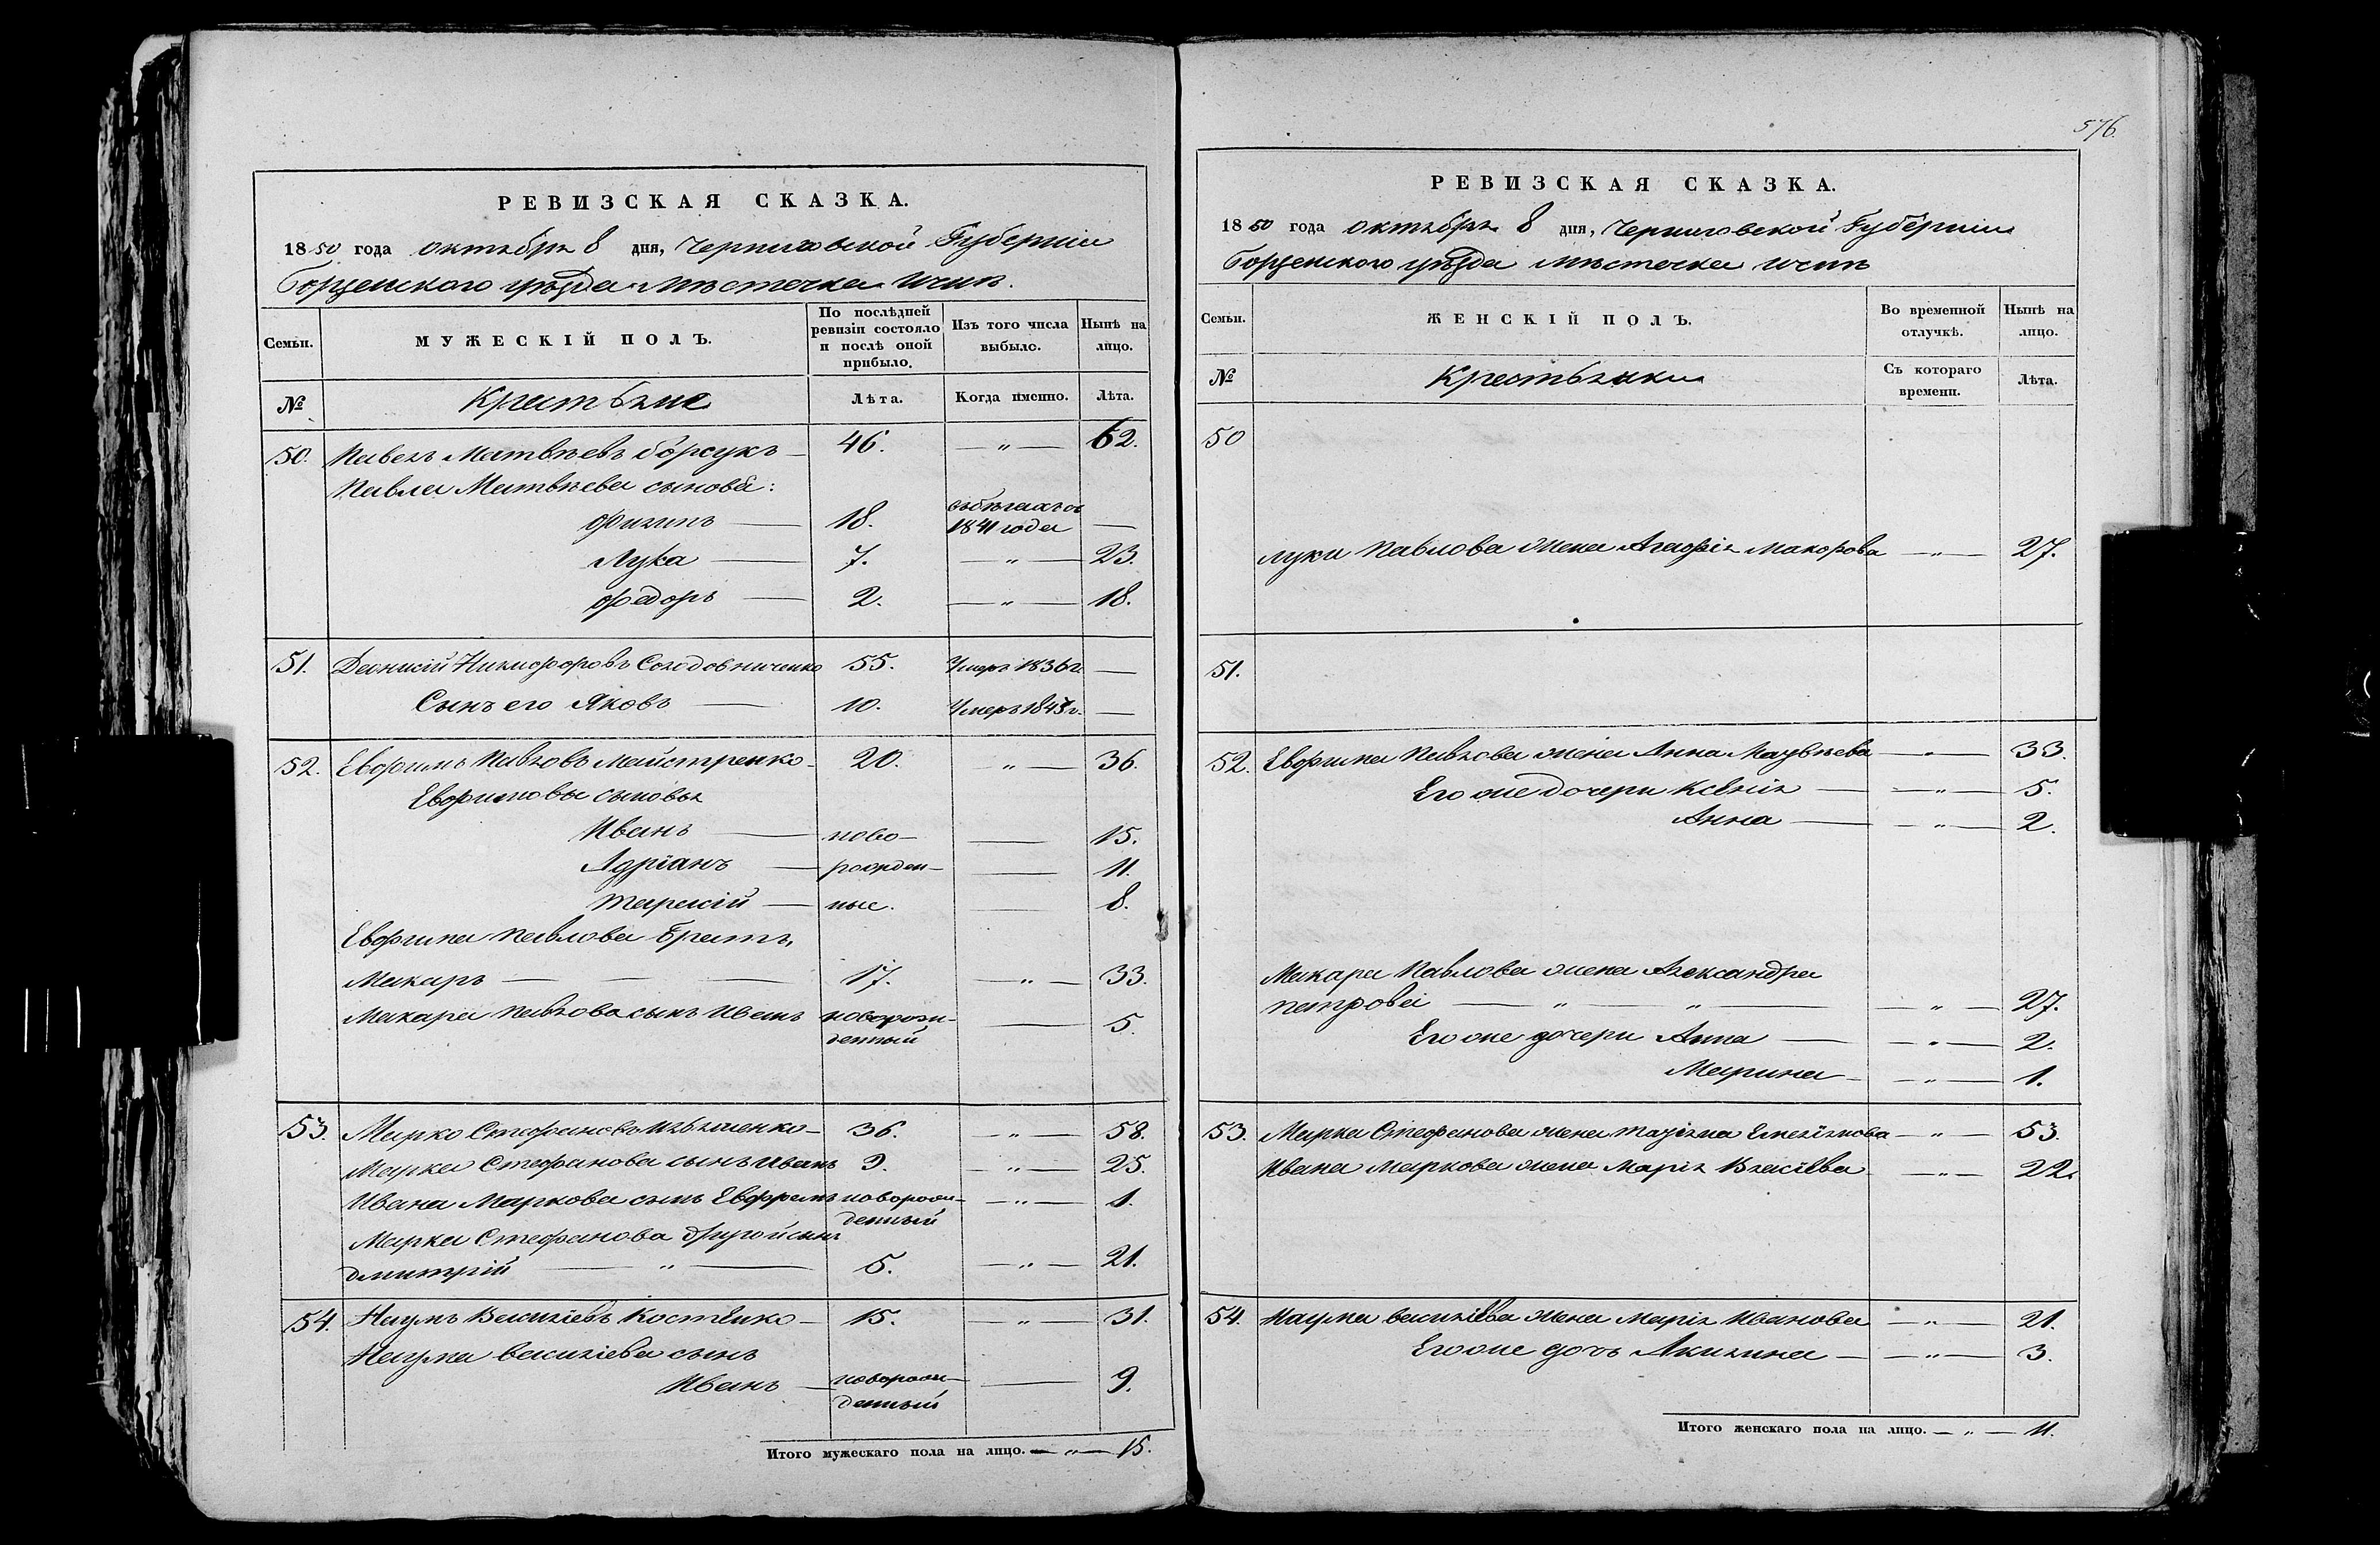 РЕВИЗСКАЯ СКАЗКА.
1850 года октября 8 дня, Черниговской Губерніи
Борзенского уѣзда мѣстечка Ични.
Семьи. МУЖЕСКІЙ ПОЛЪ. По послѣдней ревизіи состояло и послѣ оной прибыло. Изъ того числа выбыло. Нынѣ на лицо.
№ Крестьяне Лѣта. Когда именно. Лѣта.
50. Павелъ Матвѣевъ Борсукъ — 46. — „ — 62.
Павла Матвѣева сыновья:
Филипъ — 18. въ бѣгахъ съ 1841 года —
Лука — 7. — „ — 23.
Федоръ — 2. — „ — 18.
51. Деонисій Никифоровъ Солодовниченко 55. Умеръ 1836 г. —
Сынъ его Яковъ — 10. Умеръ 1843 г. —
52. Евфимъ Павловъ Майстренко — 20. — „ — 36.
Евфимовы сыновья
Иванъ — ново- — 15.
Адріанъ — рожден- — 11.
Тарасій — ные. — 8.
Евфима Павлова братъ,
Макаръ — — — 17. — „ — 33.
Макара Павлова сынъ Иванъ новорожденный — 5.
53. Марко Стефановъ — 36. — „ — 58.
Марка Стефанова сынъ Иванъ 9. — „ — 25.
Ивана Маркова сынъ Ефремъ новорожденный — „ — 1.
Марка Стефанова другой сынъ
Дмитрій — „ — 5. — „ — 21.
54. Наумъ Василіевъ Костенко — 15. — „ — 31.
Наума Василіева сынъ
Иванъ — новорожденный — 9.
Итого мужескаго пола на лицо. — „ — 15.
576.
РЕВИЗСКАЯ СКАЗКА.
1850 года октября 8 дня, Черниговской Губерніи
Борзенского уѣзда мѣстечка Ични
Семьи. ЖЕНСКІЙ ПОЛЪ. Во временной отлучкѣ. Нынѣ на лицо.
№ Крестьянки Съ котораго времени. Лѣта.
50
Луки Павлова жена Агафія Макорова — „ — 27.
51.
52. Евфима Павлова жена Анна Матвѣева — „ — 33.
Его же дочери Ксенія — — „ — 5.
Анна — — „ — 2.
Макара Павлова жена Александра
Петрова — „ — „ — — „ — 27.
Его же дочери Анна — — „ — 2.
Марина — — „ — 1.
53. Марка Стефанова жена Татіяна Емеліянова — „ — 53.
Ивана Маркова жена Марія Власіева — „ — 22.
54. Наума Василіева жена Марія Иванова — „ — 21.
Его же дочь Акилина — — „ — 3.
Итого женскаго пола на лицо. — „ — 11.